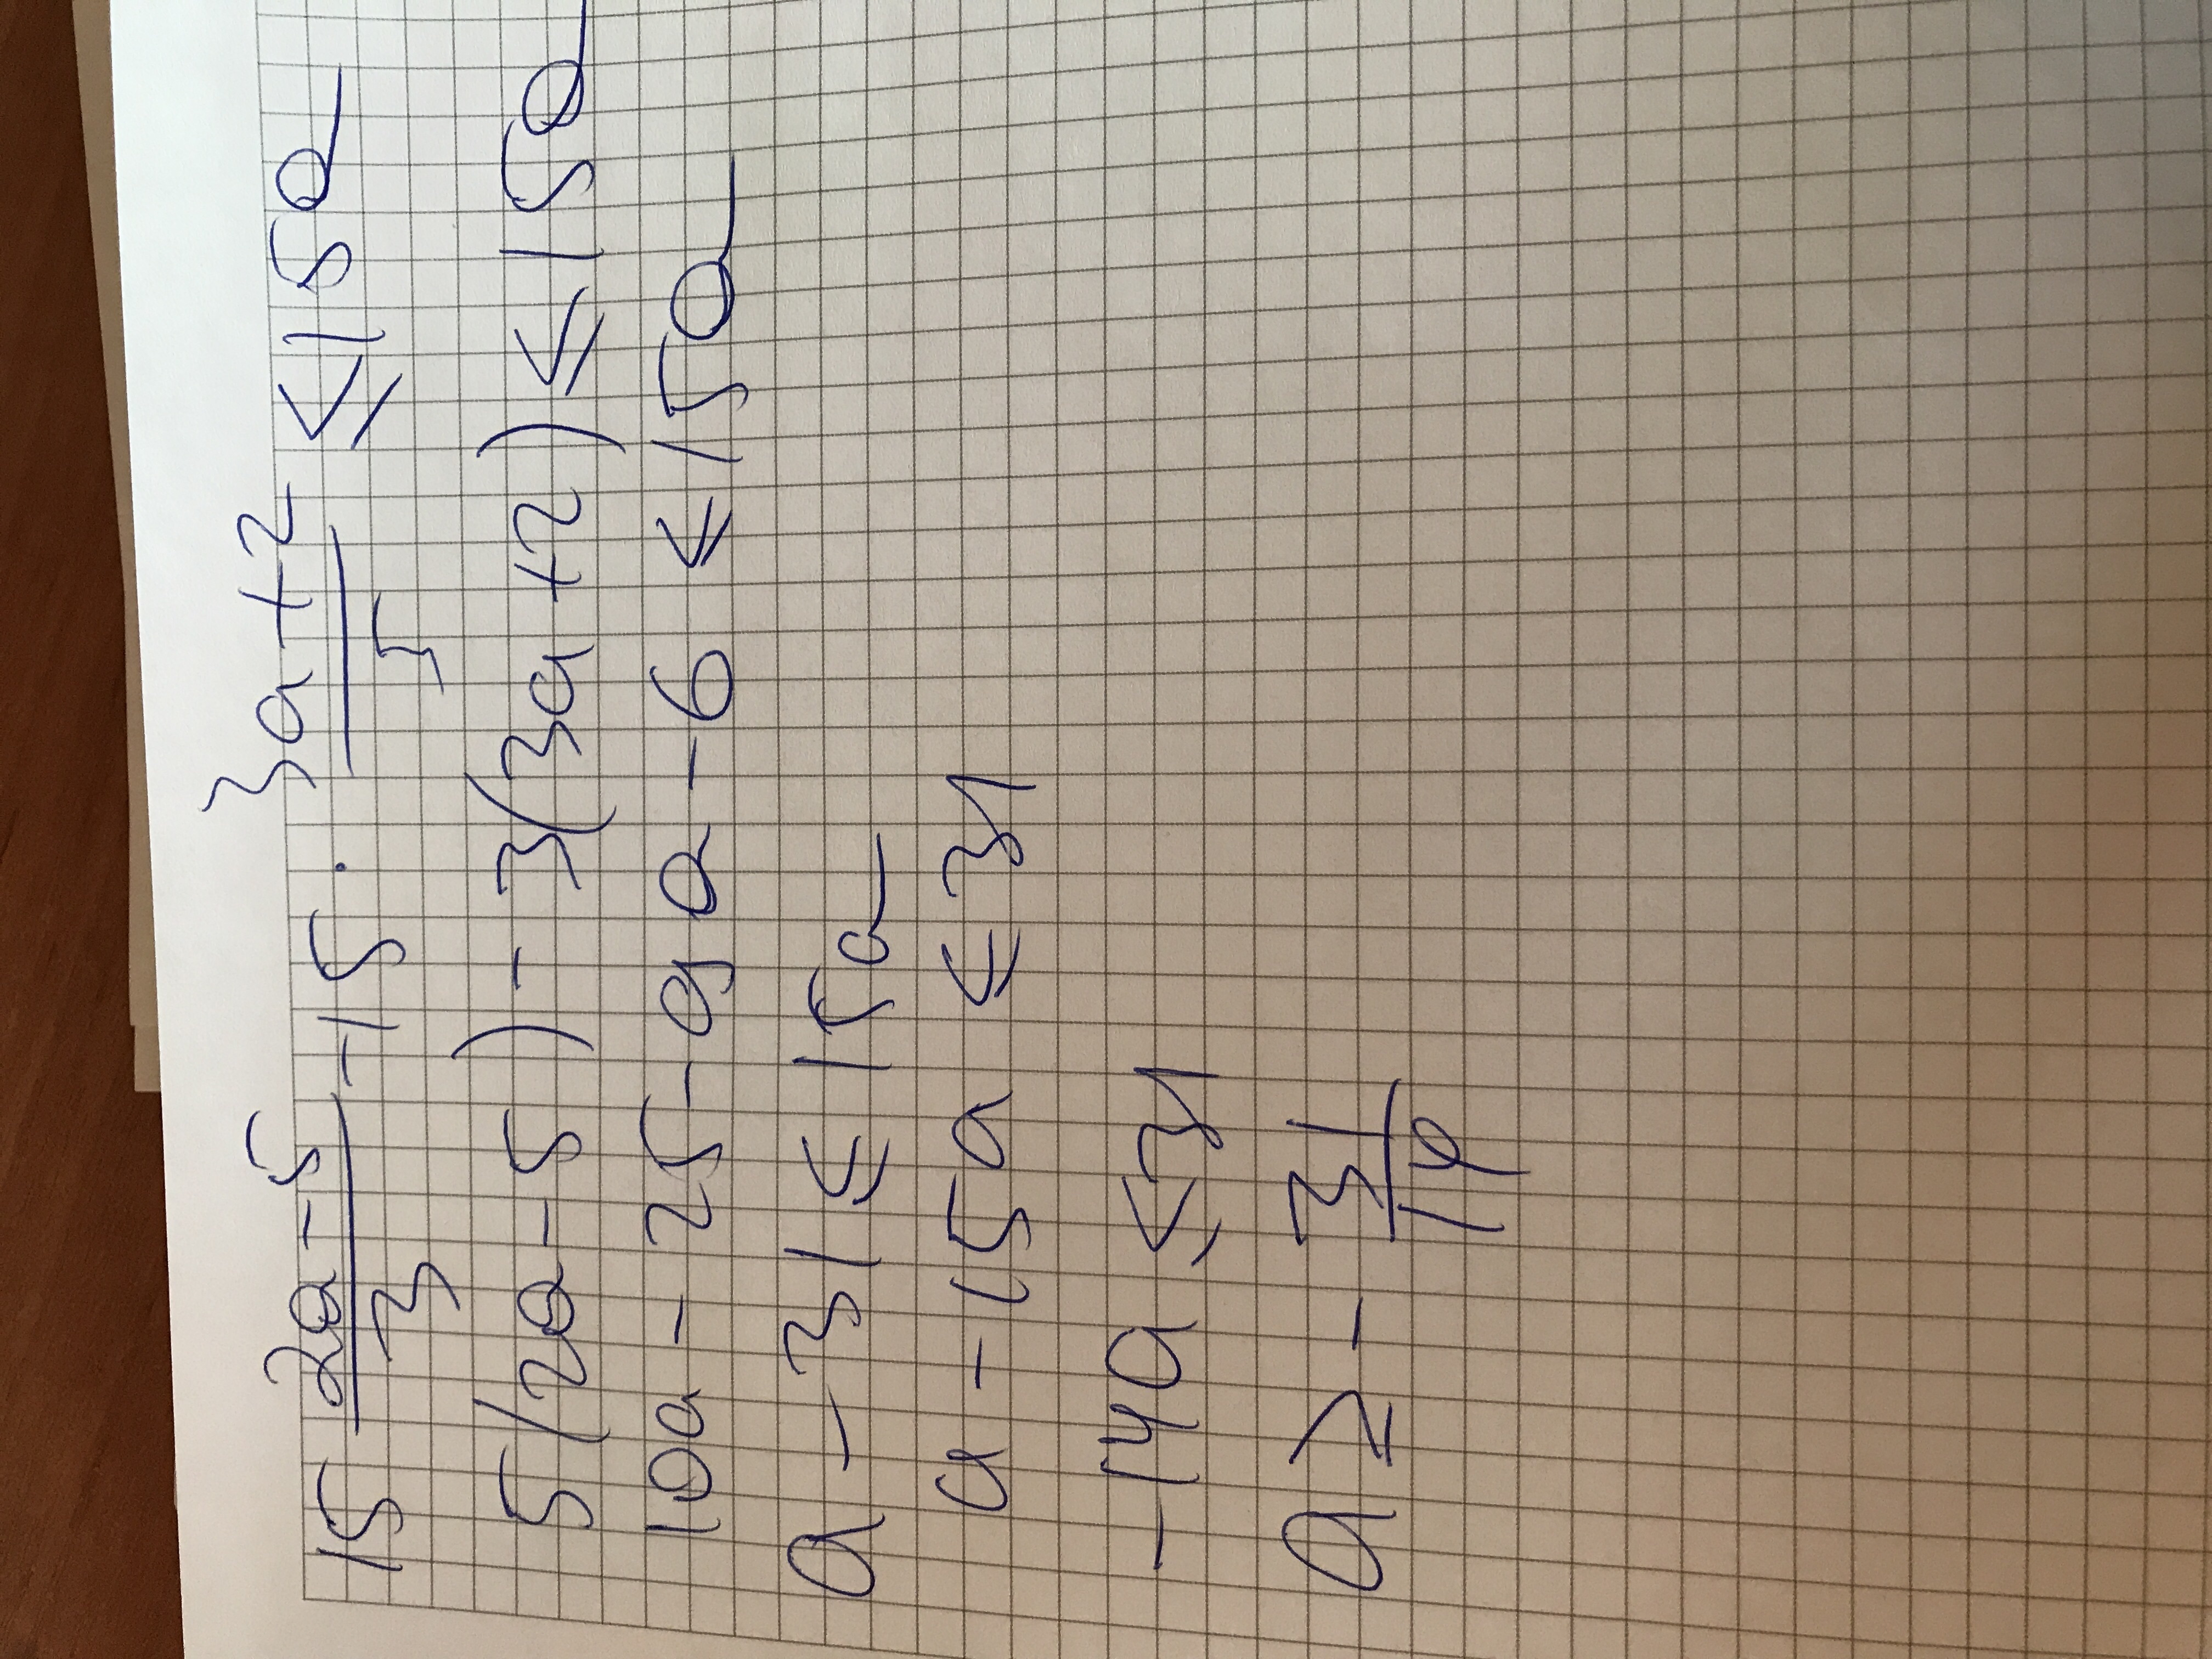 15 \frac{2a-5}{3} - 15 · \frac{3a+2}{5} ≤ 15a
5(2a-5) - 3(3a+2) ≤ 15a
10a - 25 - 9a - 6 ≤ 15a
a - 31 ≤ 15a
a - 15a ≤ 31
-14a ≤ 31
a ≥ - \frac{31}{14}